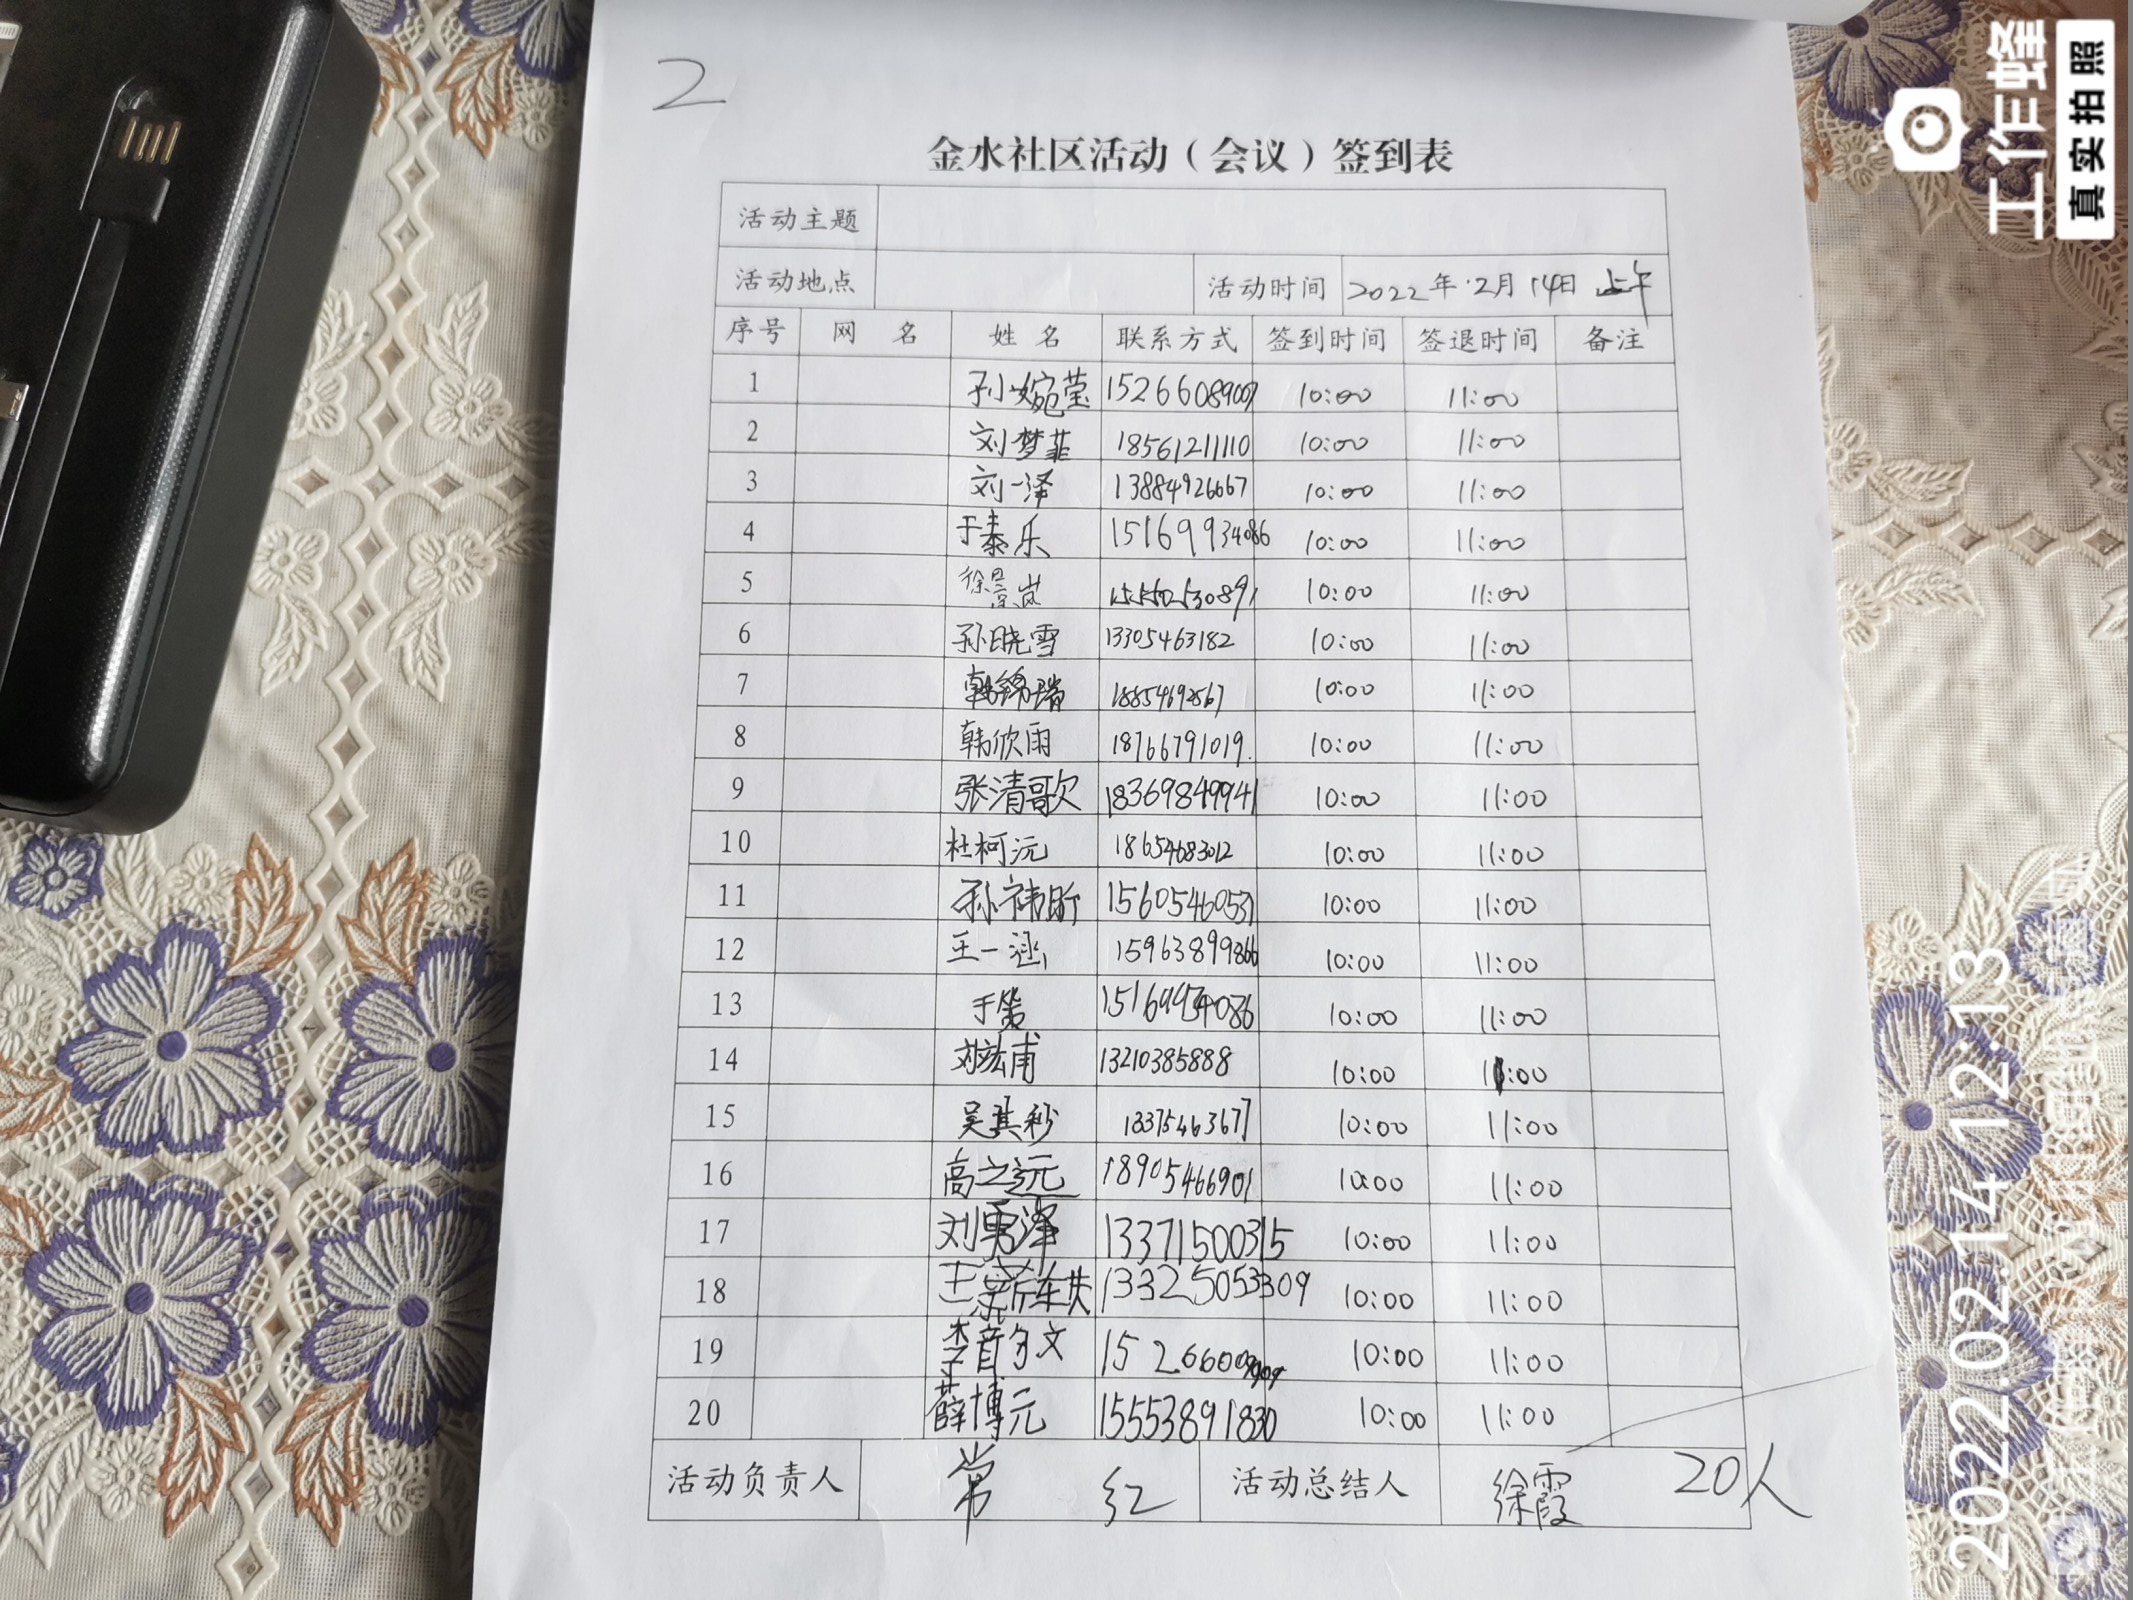 2
金水社区活动（会议）签到表
活动主题
活动地点 活动时间 2022年2月14日 上午
序号 网 名 姓 名 联系方式 签到时间 签退时间 备注
1 孙婉莹 15266089009 10:00 11:00
2 刘梦菲 18561211110 10:00 11:00
3 刘一泽 13884926667 10:00 11:00
4 于泰乐 15169934086 10:00 11:00
5 徐景岚 15550530891 10:00 11:00
6 孙晓雪 13305463182 10:00 11:00
7 韩锦瑞 18854692567 10:00 11:00
8 韩欣雨 18766791019. 10:00 11:00
9 张清歌 18369849941 10:00 11:00
10 杜柯沅 18654683012 10:00 11:00
11 孙祎昕 15605460537 10:00 11:00
12 王一涵 15963899866 10:00 11:00
13 于 15169934086 10:00 11:00
14 刘 甫 13210385888 10:00 11:00
15 吴其秒 18375463677 10:00 11:00
16 高之远 18905466901 10:00 11:00
17 刘勇泽 13371500315 10:00 11:00
18 王 13325053309 10:00 11:00
19 李 文 10:00 11:00
20 薛博元 15553891830 10:00 11:00
活动负责人 常 红 活动总结人 徐霞 20人
工作蜂
真实拍照
2022.02.14 12:13